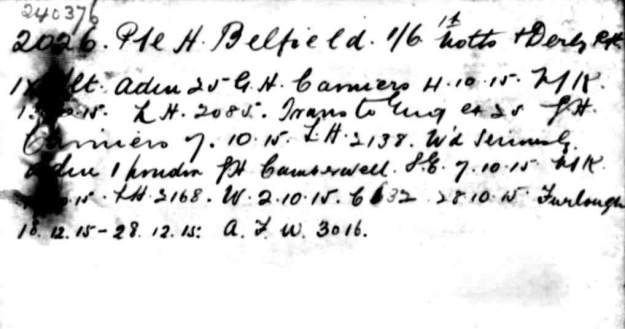 240376
2026. Pte H. Belfield. 1/6th Notts & Derby Rgt
Adm 25 G.H. Camiers 4.10.15.
15. L H. 2085. Trans to Eng ex 25 G.H.
Camiers 7.10.15. L H. 2138. W'd Seriously.
Adm 1 London G H Camberwell. S.E. 7.10.15
15. L H 3168. W. 2.10.15. C 632 28.10.15 Furlough
18.12.15 - 28.12.15: A. F. W. 3016.